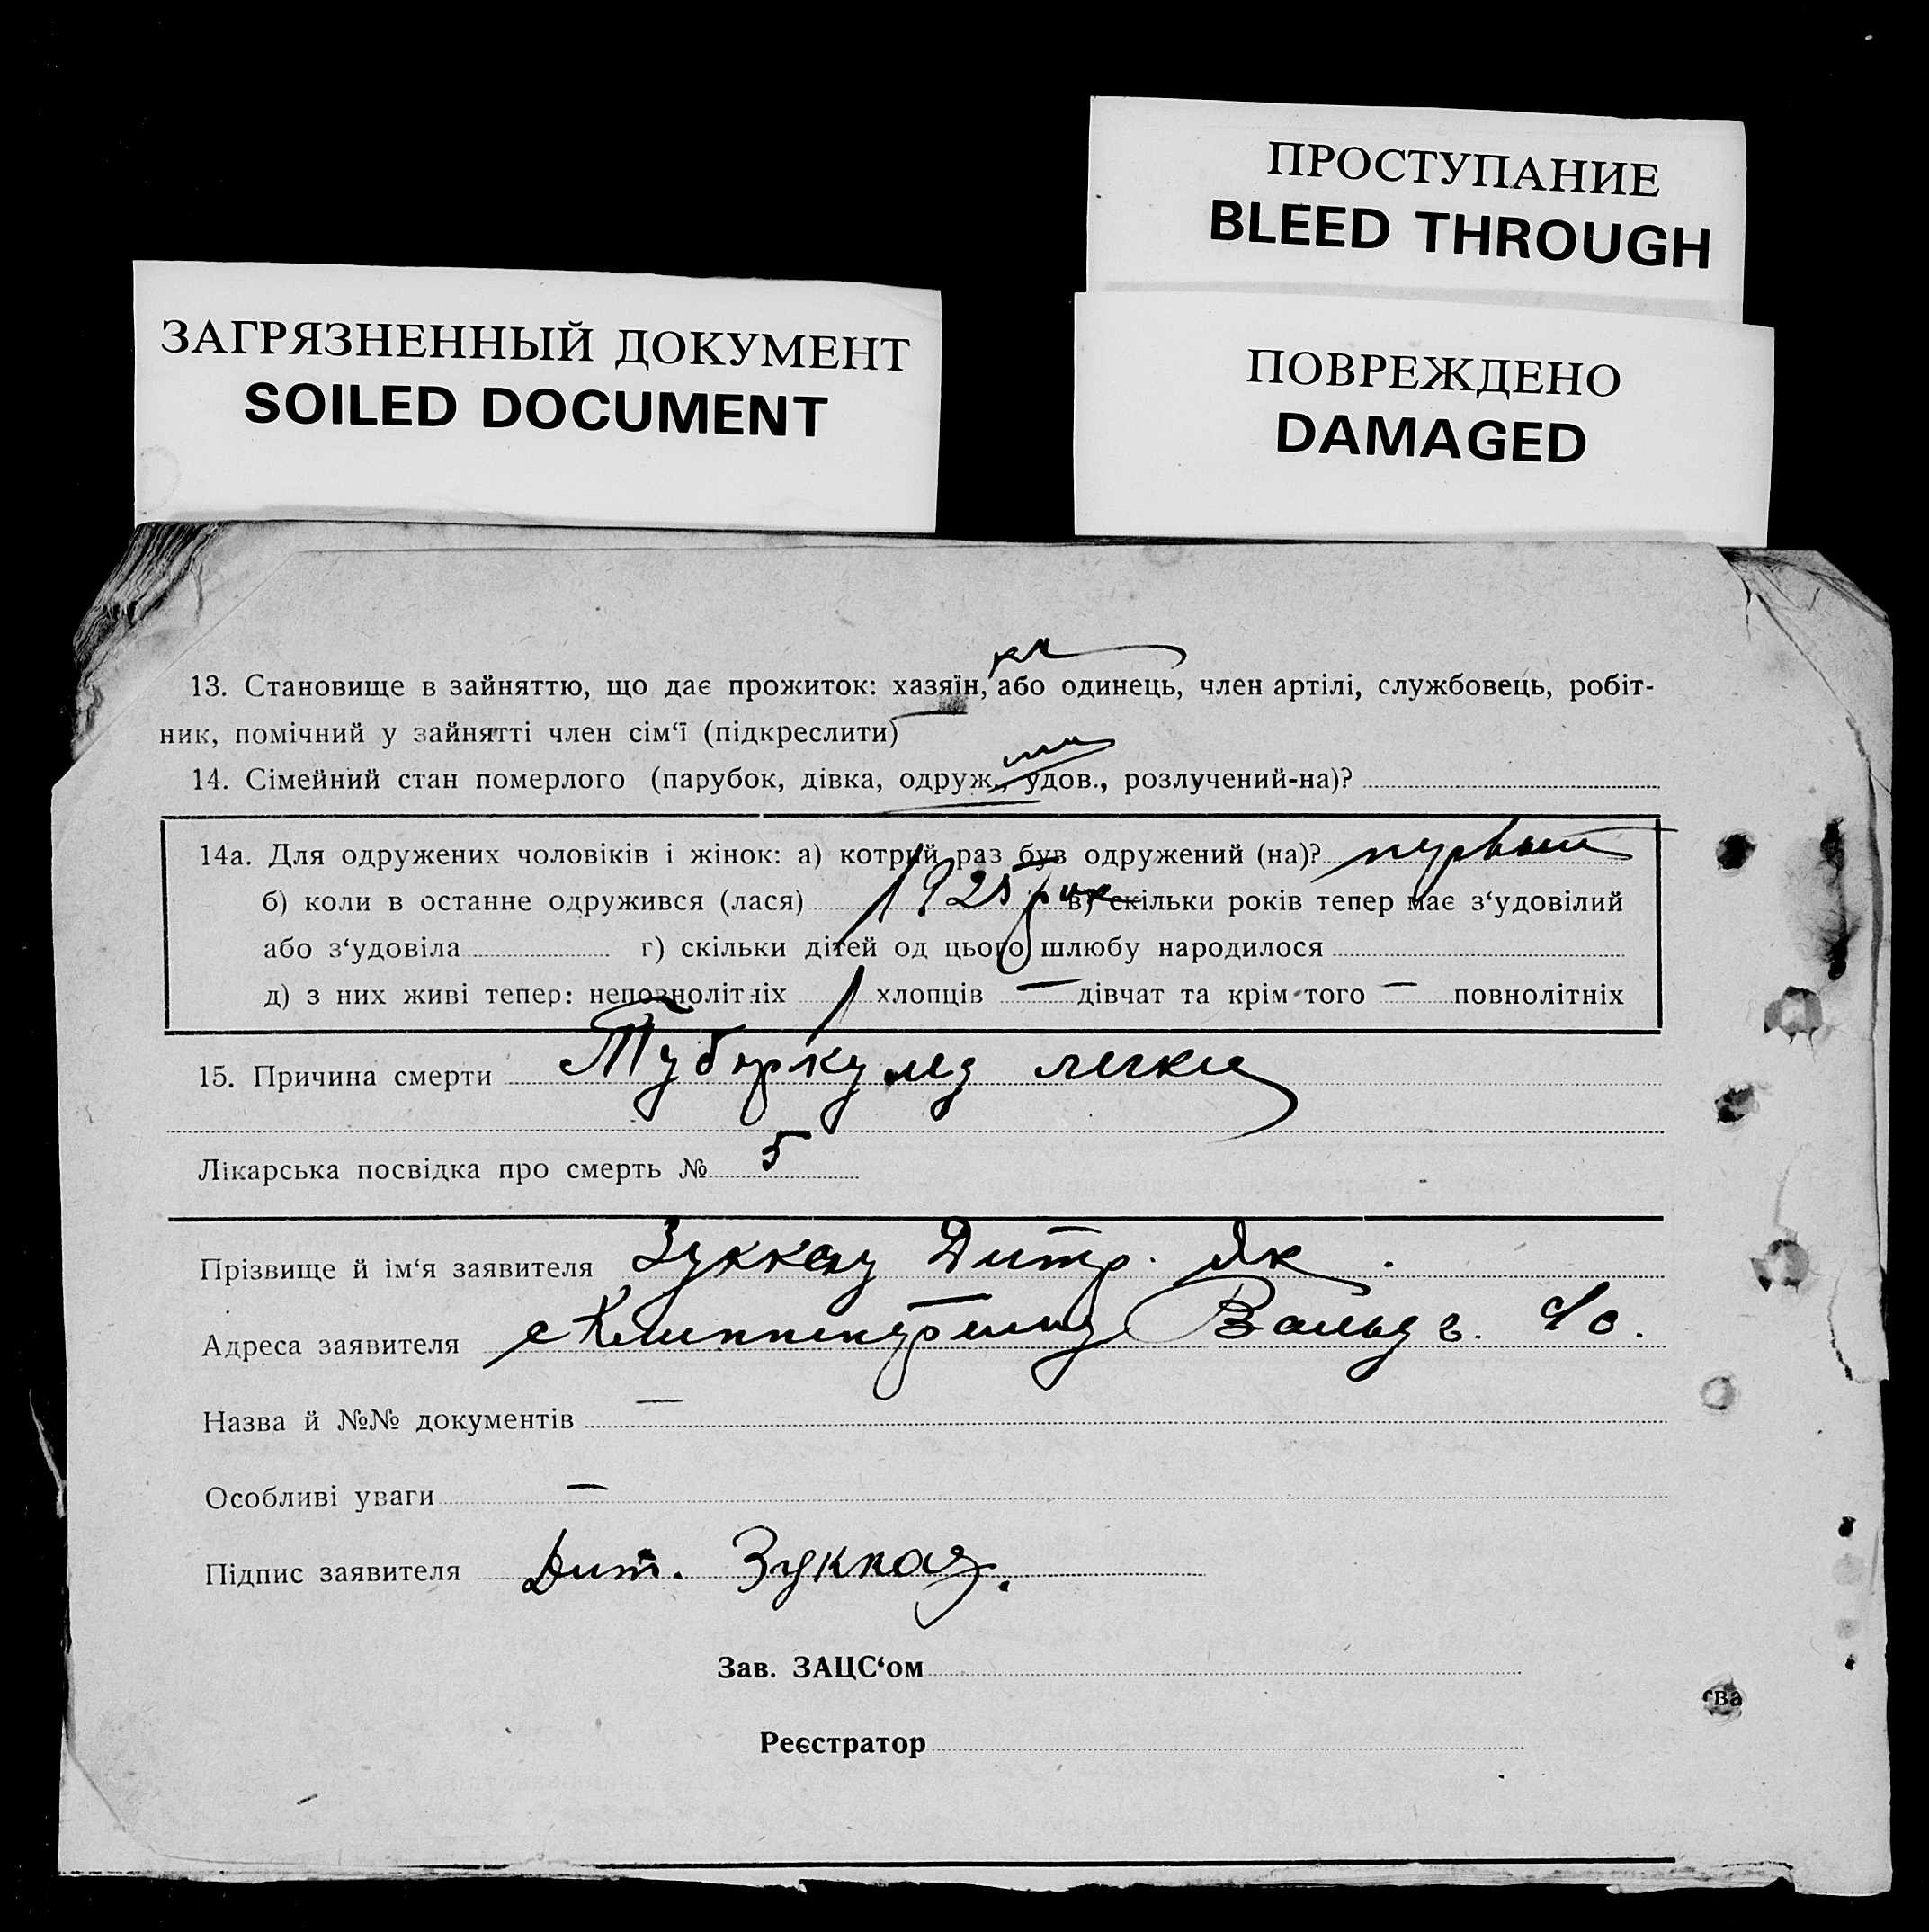 ПРОСТУПАНИЕ
BLEED THROUGH
ЗАГРЯЗНЕННЫЙ ДОКУМЕНТ
SOILED DOCUMENT
ПОВРЕЖДЕНО
DAMAGED
ка
13. Становище в зайняттю, що дає прожиток: хазяїн, або одинець, член артілі, службовець, робіт-
ник, помічний у зайнятті член сім‘ї (підкреслити)
14. Сімейний стан померлого (парубок, дівка, одруж., удов., розлучений-на)?
14а. Для одружених чоловіків і жінок: а) котрий раз був одружений (на)? первый
б) коли в останне одружився (лася) 1925 рок в) скільки років тепер має з‘удовілий
або з‘удовіла г) скільки дітей од цього шлюбу народилося
д) з них живі тепер: неповнолітніх 1 хлопців — дівчат та крім того — повнолітніх
15. Причина смерти Туберкулез легких
Лікарська посвідка про смерть № 5
Прізвище й ім‘я заявителя Зуккау Дитр. Як.
Адреса заявителя с
Назва й №№ документів —
Особливі уваги —
Підпис заявителя Дит. Зуккау.
Зав. ЗАЦС‘ом
ва
Реєстратор